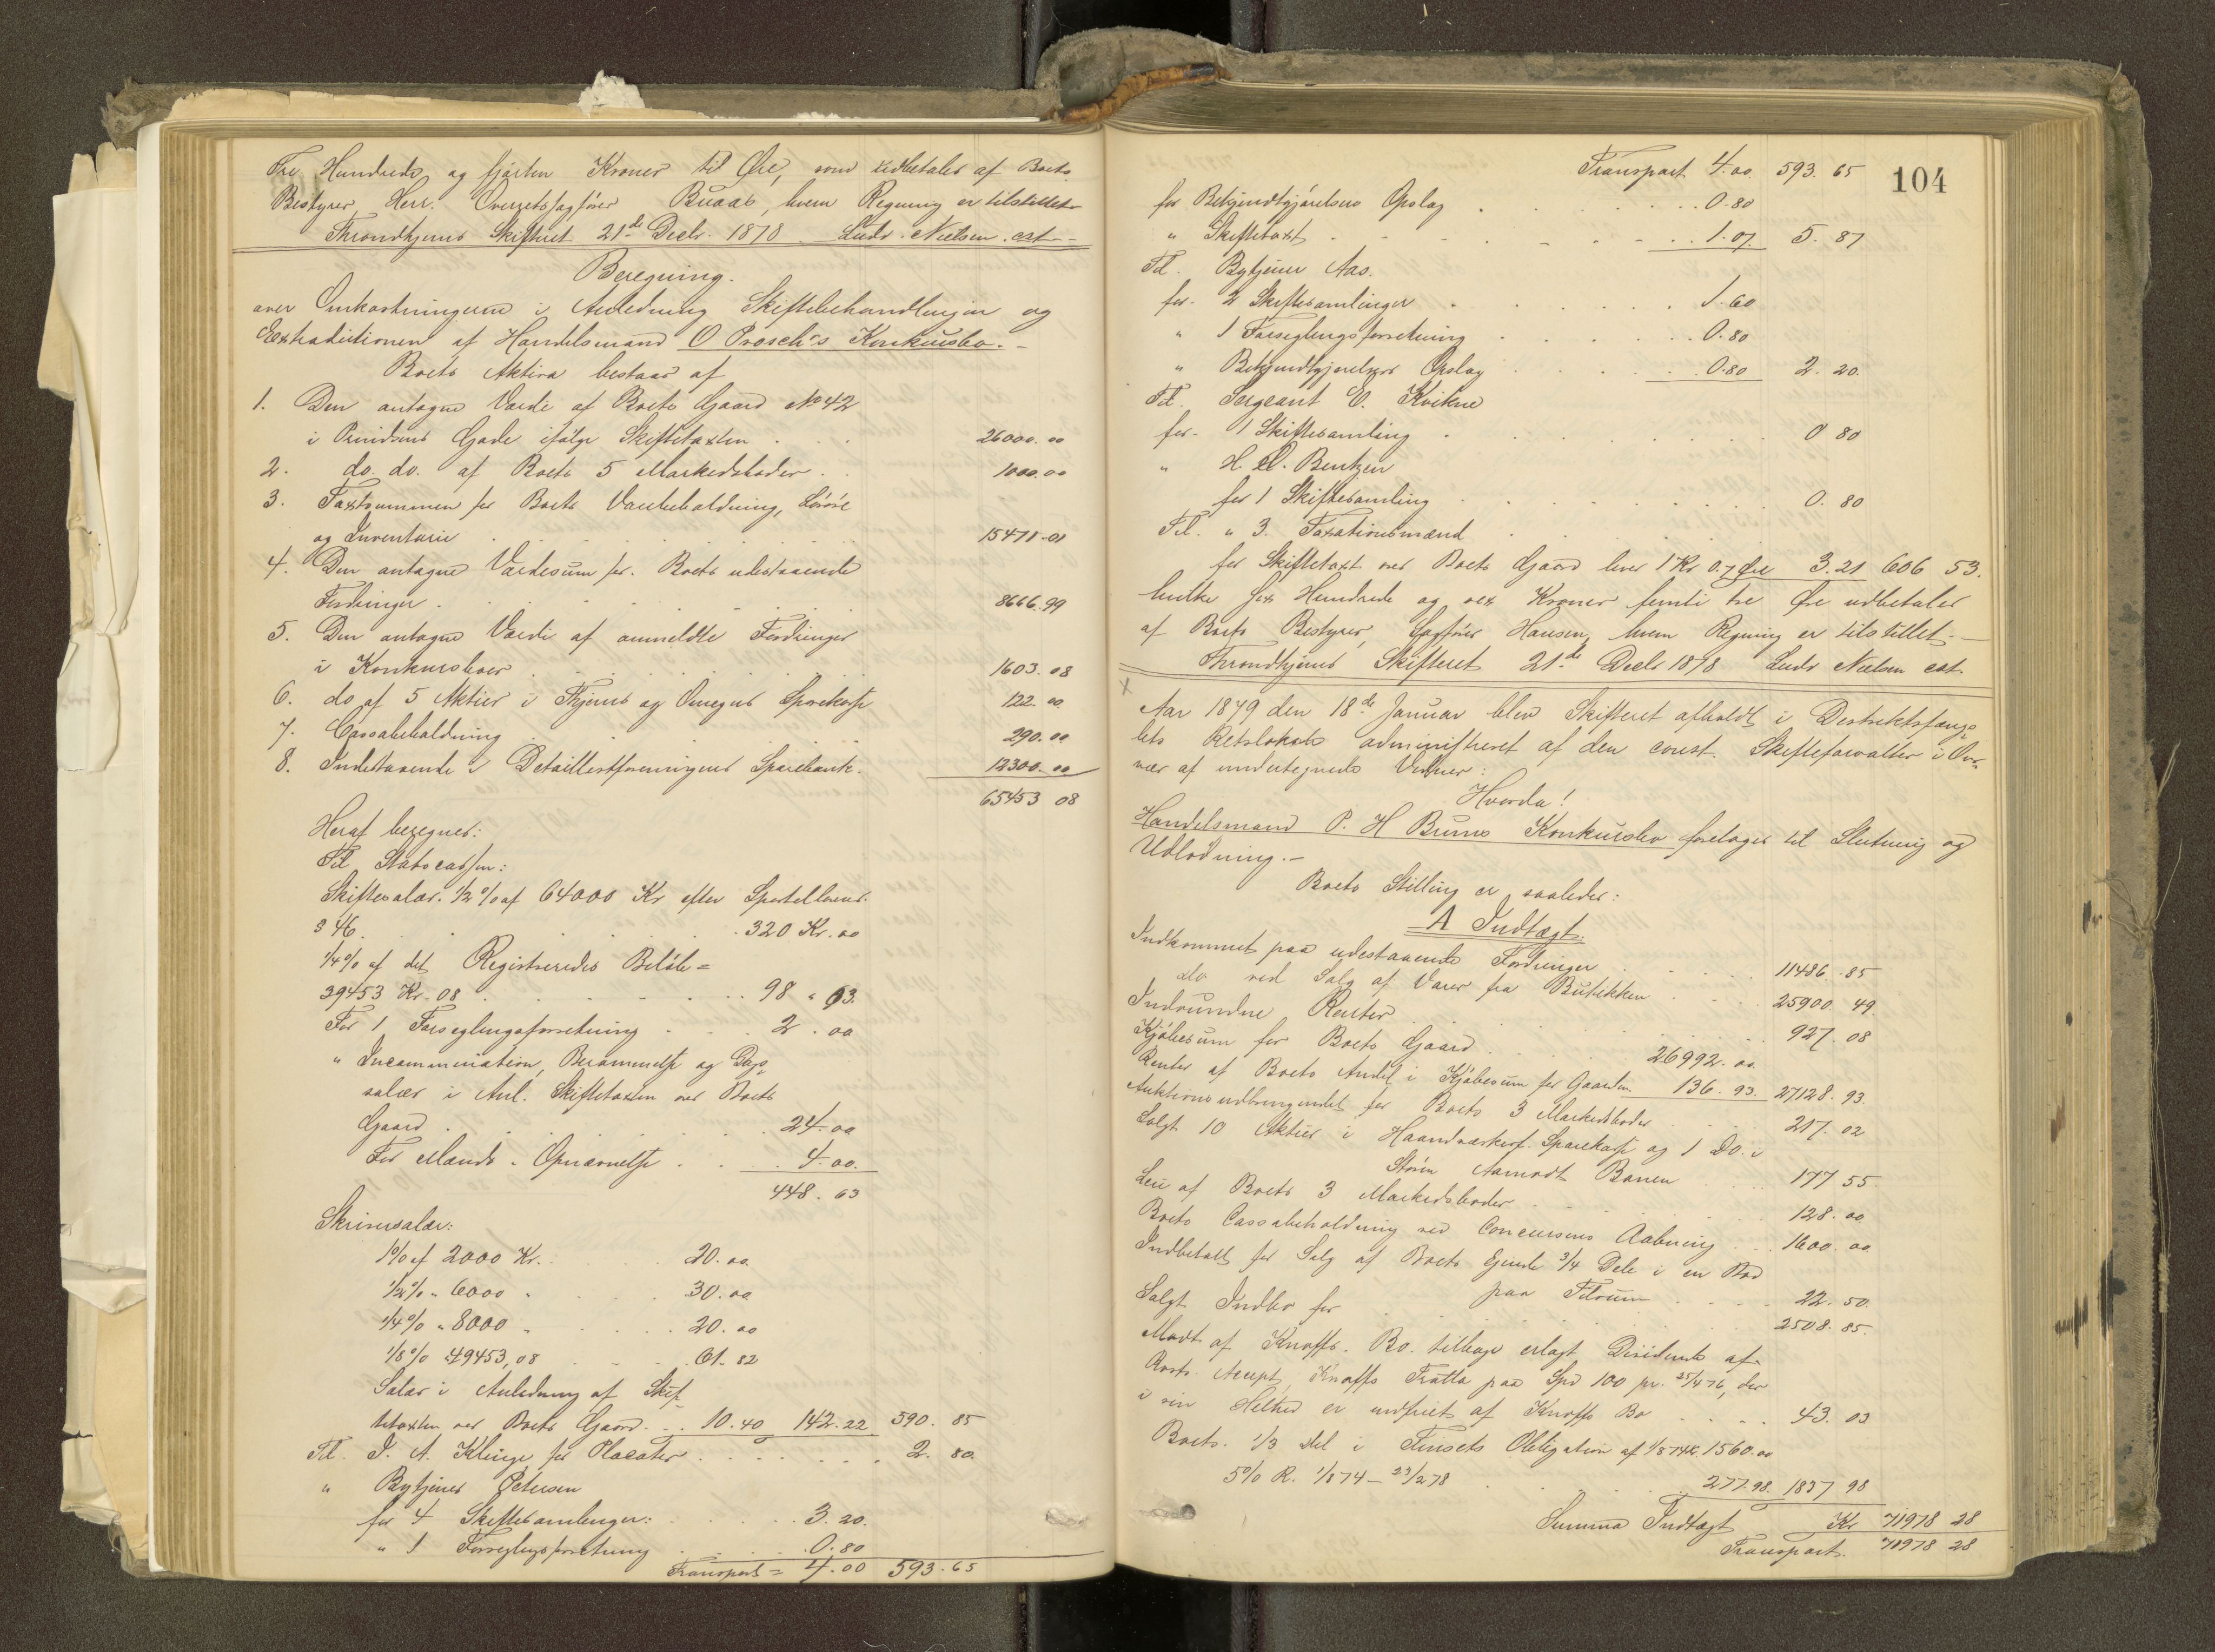 Tre Hundrede og fjorten Kroner ti Øre, som udbetales af Boets
Bestyrer Herr. Overretssagfører Buaas, hvem Regning er tilstillet
Throndhjems Skifteret 21de Decbr. 1878. Ludv. Nielsen. cst.
Beregning.
over Omkostningerne i Anledning Skiftebehandlingen og
Extraditionen af Handelsmand O Prosch's Konkursbo.
Boets Aktiva bestaar af
1. Den antagne Værdi af Boets Gaard No 42
i Prindsens Gade ifølge Skiftetaxten . . . 26000.00
2. do. do. af Boets 5 Markedsboder . . 1000.00
3. Taxtsummen for Boets Varebeholdning, Løsøre
og Inventarie . . . 15471.01
4. Den antagne Værdesum for Boets udestaaende
Fordringer . . . 8666.99
5. Den antagne Værdi af anmeldte Fordringer
i Konkursboer . . . 1603.08
6. do af 5 Aktier i Thjems og Omegns Sparekasse 122.00
7. Cassabeholdning . . . 290.00
8. Indestaaende i Detaillestforeningens Sparebank. 12300.00
65453 08
Heraf beregnes:
Til Statscassen:
Skiftesalær. 1/2 % af 64000 Kr efter Sportellovens
§ 46. . . . 320 Kr. 00
1/4 % af det Registreredes Beløb =
39453 Kr. 08 . . . 98 " 63.
For 1 Forseglingsforretning . . . 2. 00
" Incammination, Berammelse og Dags
salær i Anl. Skiftetaxten over Boets
Gaard . . . 24.00
For Mænds Opnævnelse . . . 4.00.
448. 63
Skriversalær:
1% af 2000 Kr. . . . 20.00.
1/2% " 6000 " . . . 30.00
1/4% " 8000 " . . . 20.00
1/8% " 49453,08 . . . 61.82
Salær i Anledning af Skif
tetaxten over Boets Gaard . . 10.40 142.22 590. 85
Til. I. A. Klinge for Placater . . . 2. 80.
" Bytjener Petersen
for 4 Skiftesamlinger: . . . 3.20.
" 1 Forseglingsforretning . . . 0.80
Transport = 4.00 593.65
104
Transport 4.00. 593. 65
for Bekjendtgjørelsens Opslag . . . 0.80
" Skiftetaxt . . . 1.07 5. 87
Til. Bytjener Aas.
for 2 Skiftesamlinger . . . 1.60
" 1 Forseglingsforretning . . . 0.80
" Bekjendtgjørelsers Opslag . . . 0.80 2. 20.
Til. Sergeant E. Kvikne
for 1 Skiftesamling . . . 0 80
" H. Bentzen
for 1 Skiftesamling . . . 0. 80
Til. " 3. Taxationsmænd . . .
for Skiftetaxt over Boets Gaard hver 1 Kr 0.7 Øre 3.21 606 53.
hvilke sex Hundrede og sex Kroner femti tre Øre udbetales
af Boets Bestyrer, Sagfører Hansen, hvem Regning er tilstillet.
Throndhjems Skifteret 21de Decbr 1878 Ludv Nielsen cst.
x
Aar 1879 den 18de Januar blev Skifteret afholdt i Distriktsfængs
lets Retslokale administreret af den const. Skifteforvalter i Over
vær af undertegnede Vidner:
Hvorda!
Handelsmand P. H Bruns Konkursbo foretages til Slutning og
Udlodning.
Boets Stilling er saaledes:
A Indtægt.
Indkommet paa udestaaende Fordringer . . . 11486. 85
do ved Salg af Varer fra Butikken . . . 25900 49
Indvundne Renter . . . 927. 08
Kjøbesum for Boets Gaard . . . 26992.00.
Renter af Boets Andel i Kjøbesum for Gaarden 136. 93. 27128. 93.
Auktionsudbringendet for Boets 3 Markedsboder . . . 217. 02
Solgt 10 Aktier i Haandværkerf. Sparekasse og 1 Do. i
Støren Aamodt Banen . . . 177 55
Leie af Boets 3 Markedsboder . . . 128. 00
Boets Cassabeholdning ved Concursens Aabning . . . 1600. 00
Indbetalt for Salg af Boets Eiende 3/4 Dele i en Bod
paa . . . 22. 50.
Solgt Indbo for . . . 2508. 85.
Modt. af Knoffs. Bo. tilbage erlagt Dividende af
Boets. Accept, Knoffs Tratta paa Spd 100 pr. 25/4 76, der
i sin Helhed er indfriet af Knoffs Bo . . . 43. 03
Boets. 1/3 Del i Obligation af 1/8 74 K. 1560.00
5% R. 1/8 74 – 23/2 78 . . . 277.98. 1837 98
Summa Indtægt Kr 71978 28
Transport. 71978 28